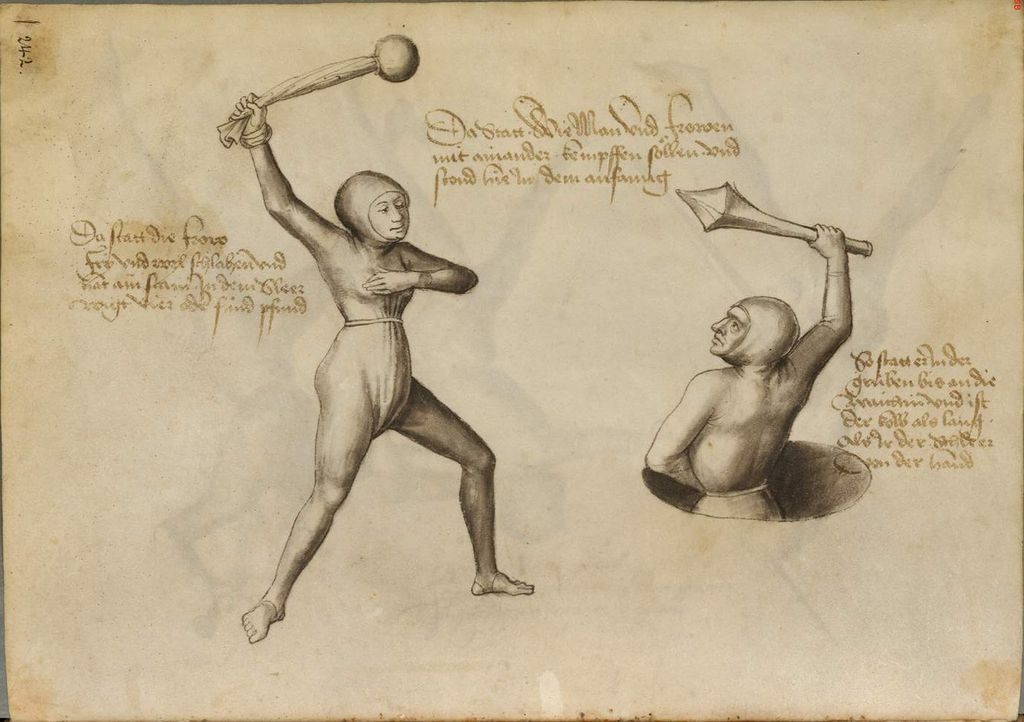 242.
Da statt Wie Man vnd Frowen
mit ainander kempffen söllen vnd
stond hie In dem anfanng
Da statt die Frow
fry vnd wyl schlahen vnd
hat ain stain In dem Sleer
wigt vier oder fünf pfund
So statt er In der
gruben bis an die
waichin vnd ist
der kolb als lang
als Ir der Schleer
von der hand